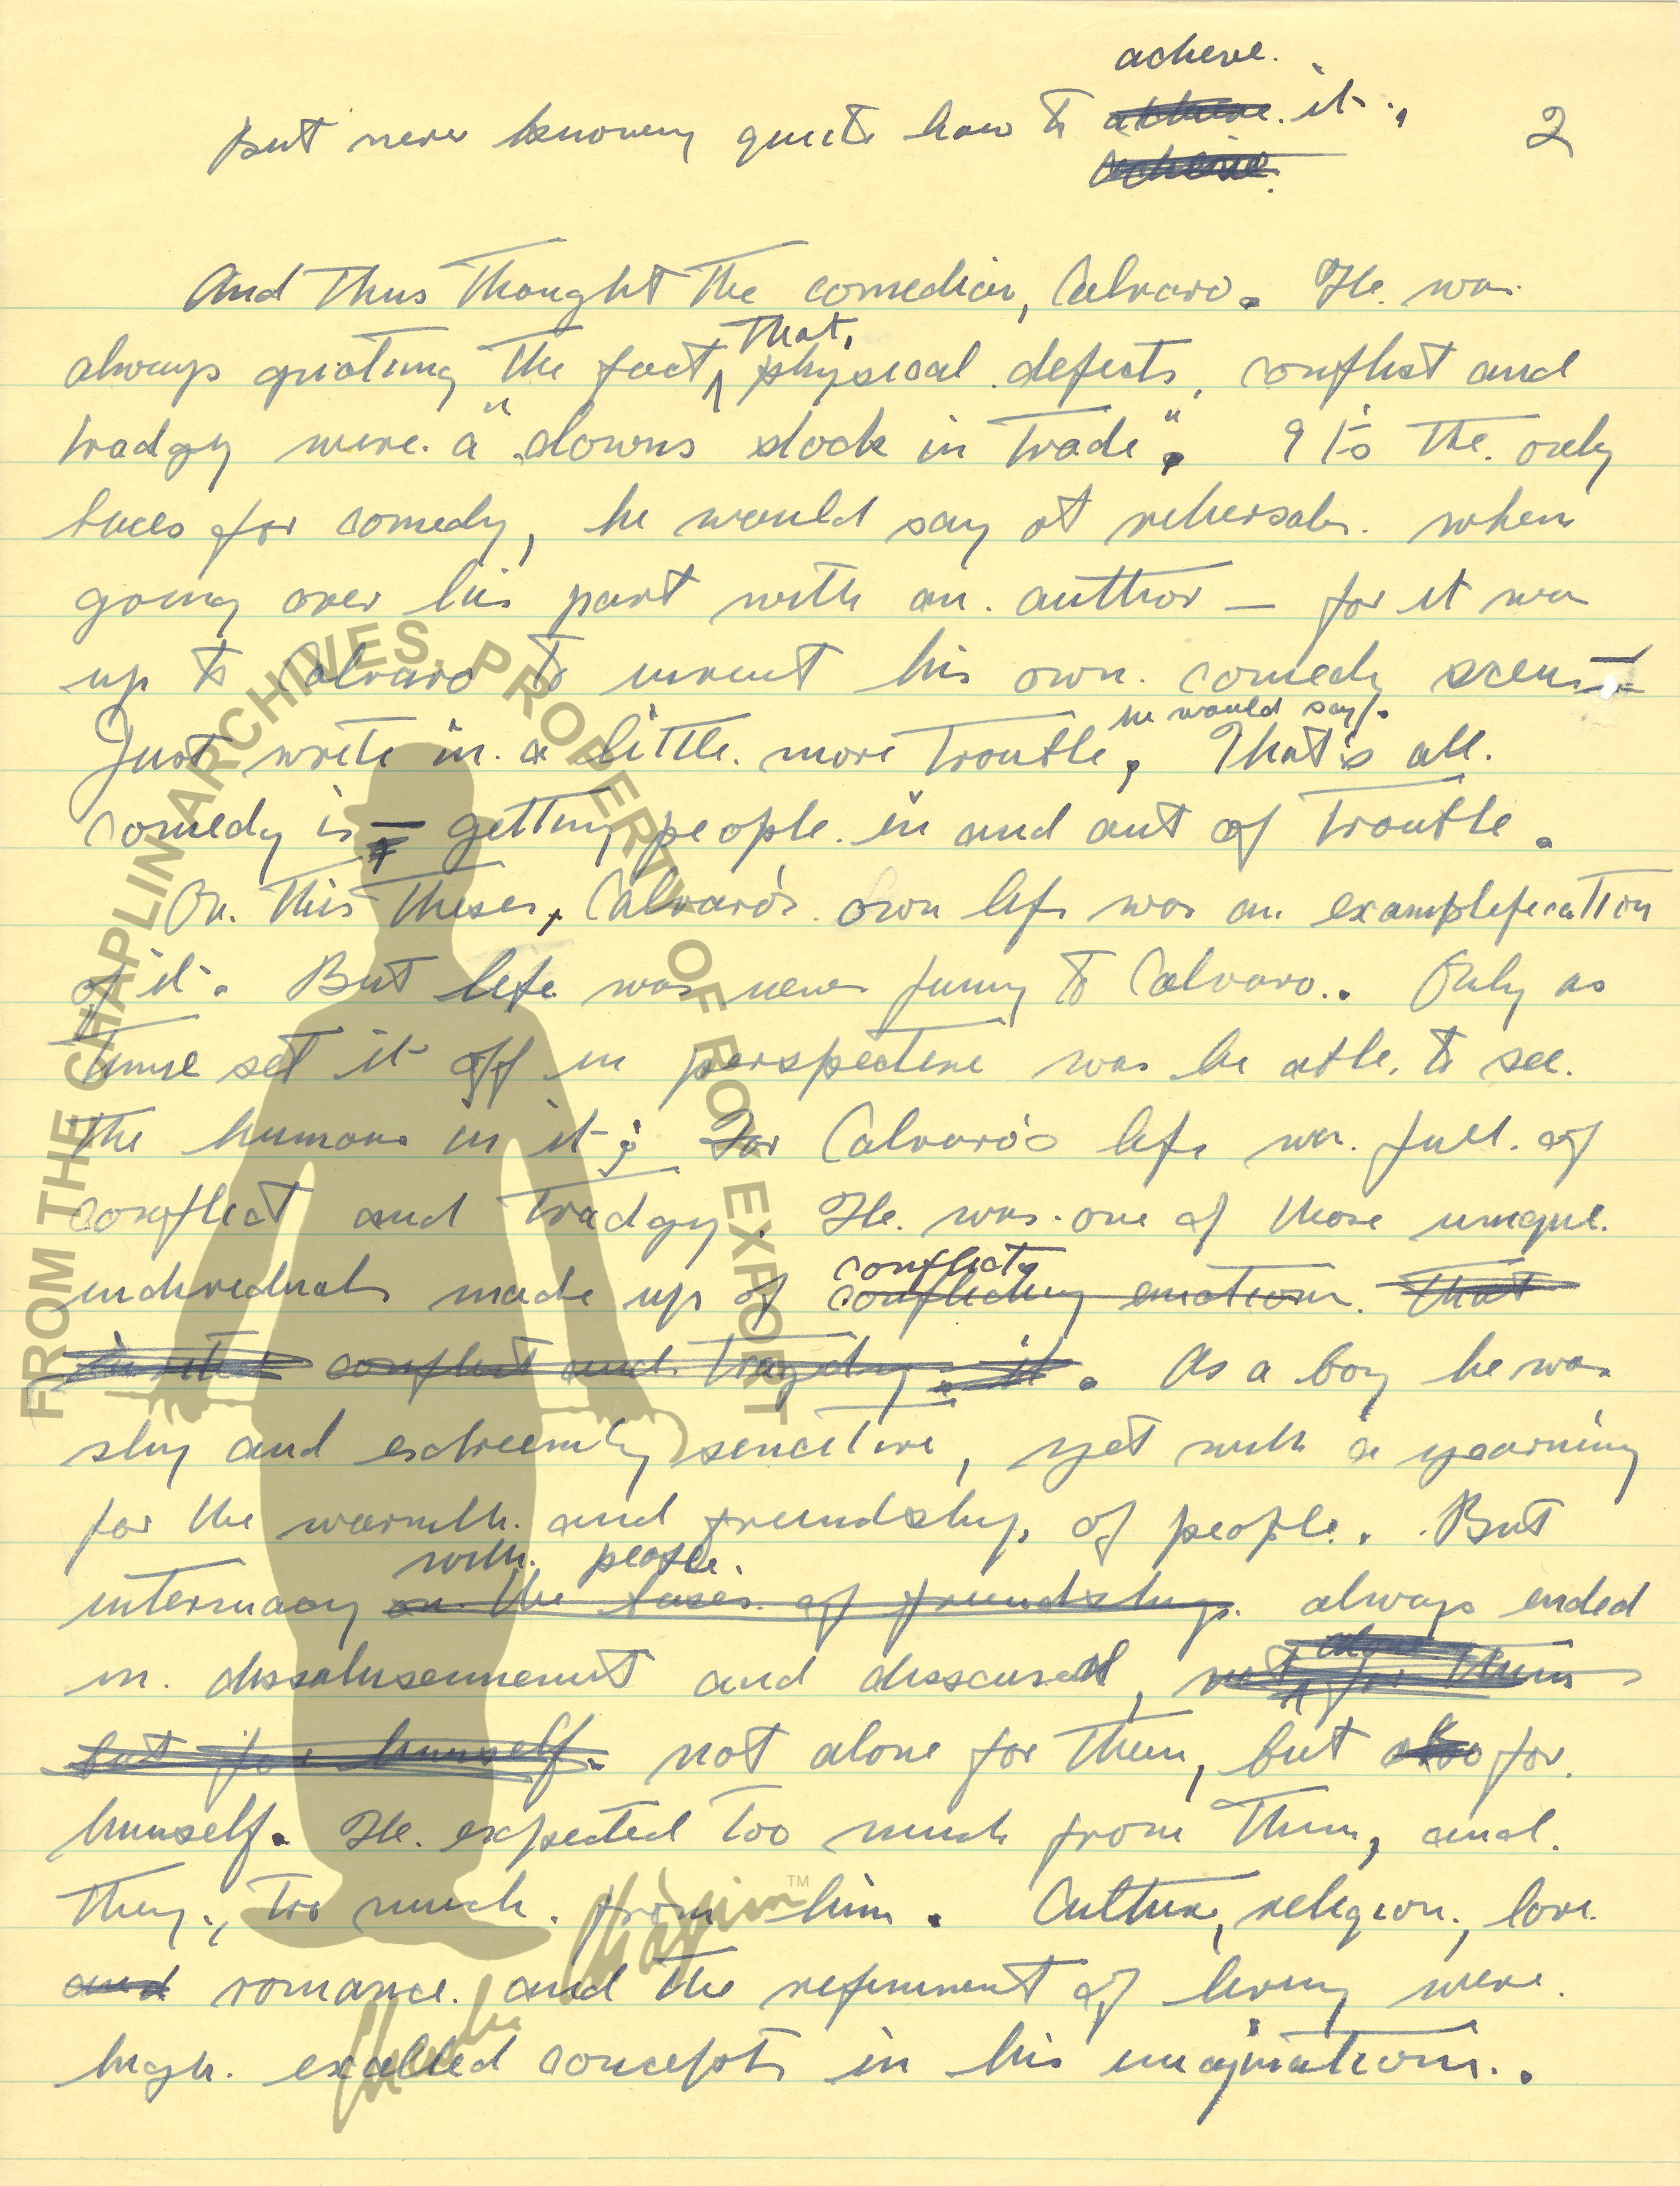 acheve.
But never knowing quite how to acheve. it., 2
acheive.
And thus thought the comedian, Calvaro. He was
that,
always quoting the fact, physical defects, conflict and
tradgy were a "clowns stock in trade". It's the only
baces for comedy, he would say at rehersals. when
going over his part with an author – for it was
up to Calvaro to invent his own comedy scenes
he would say.
Just write in a little more trouble, That's all.
comedy is – getting people in and out of trouble.
On this theses, Calvaro's own life was an examplefication
of it. But life was never funny to Calvaro. Only as
time set it off in perspective was he able to see
the humor in it; For Calvaro's life was full of
conflict and tradgy. He was one of those unique
indeviduals made up of conflicting emotions. that
conflicts
conflict and tragedy. it. As a boy he was
shy and extreemly sencetive, yet with a yearning
for the warmth and freindship of people. But
with people.
intermacy on the bases of freindship always ended
in dissalusennemt and disscused, not for them
also
but for himself. not alone for them, but also for
himself. He expected too much from them, and
they, too much from him. Culture, religion, love
and romance and the refinment of living were
high exalted concepts in his imaginations.
FROM THE CHAPLIN ARCHIVES, PROPERTY OF ROY EXPORT
Charles Chaplin TM